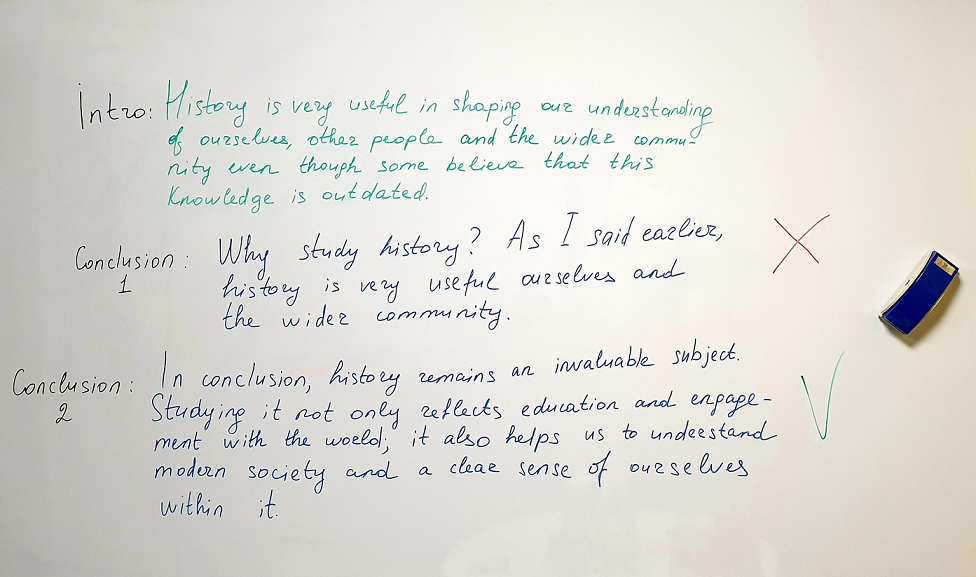 Intro: History is very useful in shaping our understanding
of ourselves, other people and the wider commu-
nity even though some believe that this
Knowledge is outdated.
Conclusion 1: Why study history? As I said earlier,
history is very useful ourselves and
the wider community.
Conclusion 2: In conclusion, history remains an invaluable subject.
Studying it not only reflects education and engage-
ment with the world; it also helps us to understand
modern society and a clear sense of ourselves
within it.